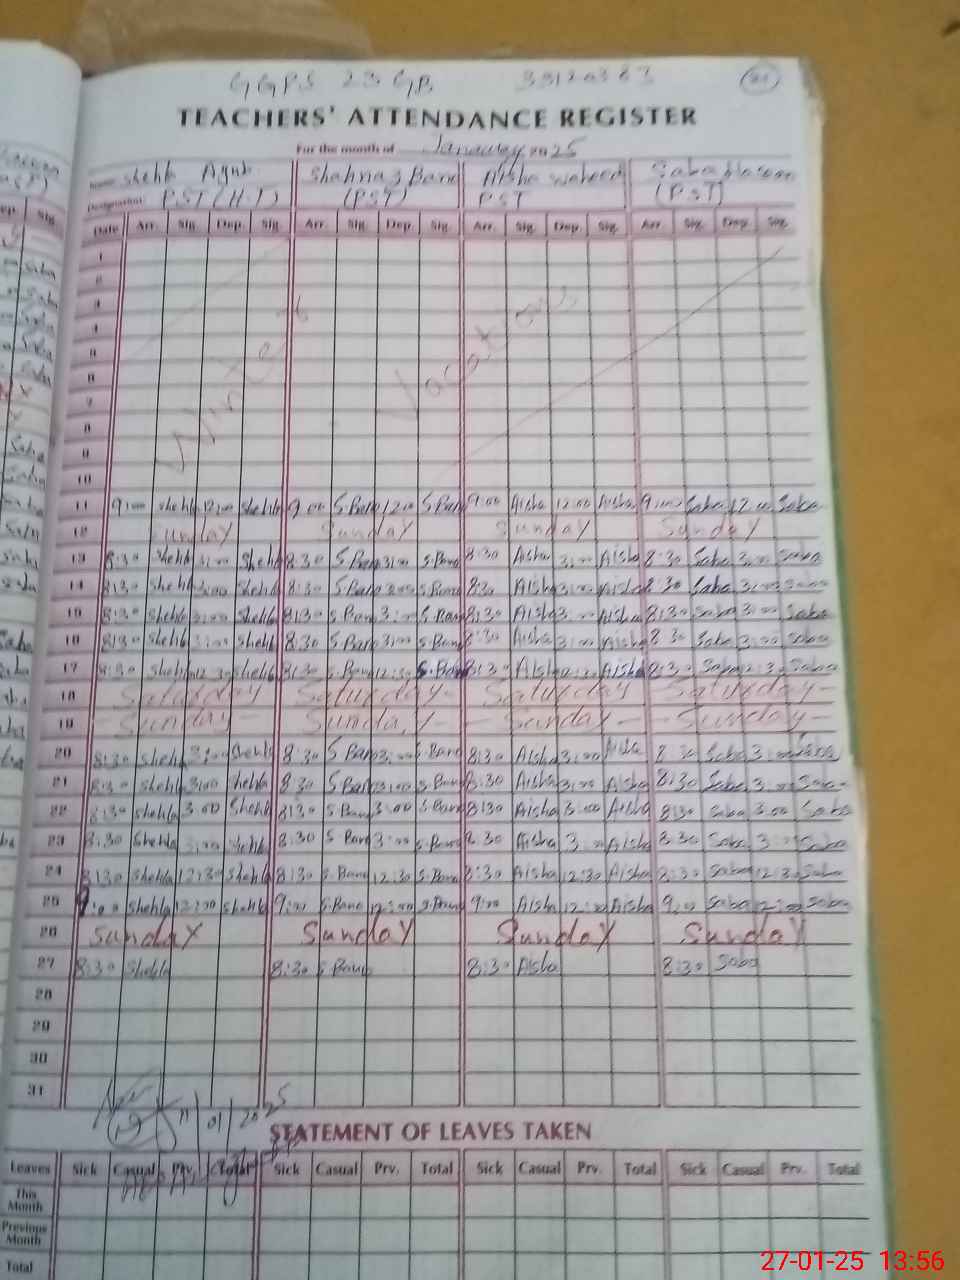 GGPS 23 GB 33120383
TEACHERS' ATTENDANCE REGISTER
For the month of January 2025
Name: Shehla Shahnaz Bano Aisha waheed Saba
Designation: PST (H.T) (PST) PST (PST)
Date Arr. Sig. Dep. Sig. Arr. Sig. Dep. Sig. Arr. Sig. Dep. Sig. Arr. Sig. Dep. Sig.
1
2
3
4
5
6
7
8
9
10
Winter Vacations
11 9:00 Shehla 12:00 Shehla 9:00 S.Bano 12:00 S.Bano 9:00 Aisha 12:00 Aisha 9:00 Saba 12:00 Saba
12 Sunday Sunday Sunday Sunday
13 8:30 Shehla 3:00 Shehla 8:30 S.Bano 3:00 S.Bano 8:30 Aisha 3:00 Aisha 8:30 Saba 3:00 Saba
14 8:30 Shehla 3:00 Shehla 8:30 S.Bano 3:00 S.Bano 8:30 Aisha 3:00 Aisha 8:30 Saba 3:00 Saba
15 8:30 Shehla 3:00 Shehla 8:30 S.Bano 3:00 S.Bano 8:30 Aisha 3:00 Aisha 8:30 Saba 3:00 Saba
16 8:30 Shehla 3:00 Shehla 8:30 S.Bano 3:00 S.Bano 8:30 Aisha 3:00 Aisha 8:30 Saba 3:00 Saba
17 8:30 Shehla 12:30 Shehla 8:30 S.Bano 12:30 S.Bano 8:30 Aisha 12:30 Aisha 8:30 Saba 12:30 Saba
18 Saturday Saturday Saturday Saturday
19 Sunday Sunday Sunday Sunday
20 8:30 Shehla 3:00 Shehla 8:30 S.Bano 3:00 S.Bano 8:30 Aisha 3:00 Aisha 8:30 Saba 3:00 Saba
21 8:30 Shehla 3:00 Shehla 8:30 S.Bano 3:00 S.Bano 8:30 Aisha 3:00 Aisha 8:30 Saba 3:00 Saba
22 8:30 Shehla 3:00 Shehla 8:30 S.Bano 3:00 S.Bano 8:30 Aisha 3:00 Aisha 8:30 Saba 3:00 Saba
23 8:30 Shehla 3:00 Shehla 8:30 S.Bano 3:00 S.Bano 8:30 Aisha 3:00 Aisha 8:30 Saba 3:00 Saba
24 8:30 Shehla 12:30 Shehla 8:30 S.Bano 12:30 S.Bano 8:30 Aisha 12:30 Aisha 8:30 Saba 12:30 Saba
25 9:00 Shehla 12:00 Shehla 9:00 S.Bano 12:00 S.Bano 9:00 Aisha 12:00 Aisha 9:00 Saba 12:00 Saba
26 Sunday Sunday Sunday Sunday
27 8:30 Shehla 8:30 S.Bano 8:30 Aisha 8:30 Saba
28
29
30
31
11/01/2025
STATEMENT OF LEAVES TAKEN
Leaves Sick Casual Prv. Total Sick Casual Prv. Total Sick Casual Prv. Total Sick Casual Prv. Total
This Month
Previous Month
Total
27-01-25 13:56